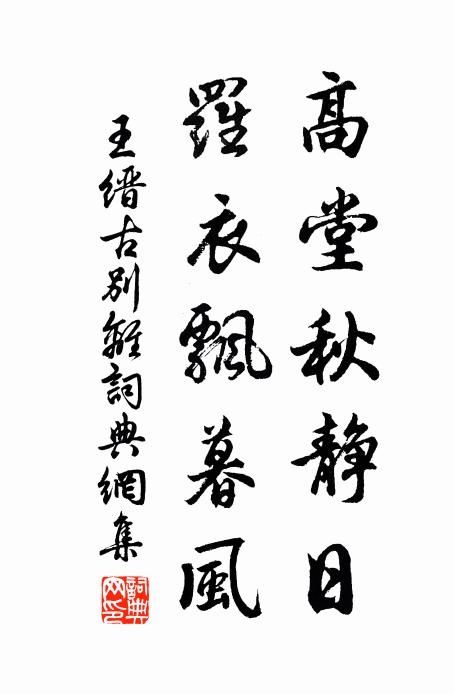 高堂秋静日
羅衣飄暮風
王縉古別離詞典網集
詞典網印